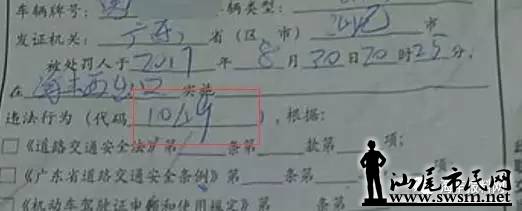 车辆牌号: 辆类型:
发证机关: 广东 省(区、市) 市
被处罚人于2017年8月30日20时25分,
在海丰西出口实施
违法行为(代码1019),根据:
□《道路交通安全法》第 条第 款第 项;
□《广东省道路交通安全条例》第 条第
□《机动车驾驶证申领和使用规定》第 条
汕尾市民网
www.swsm.net